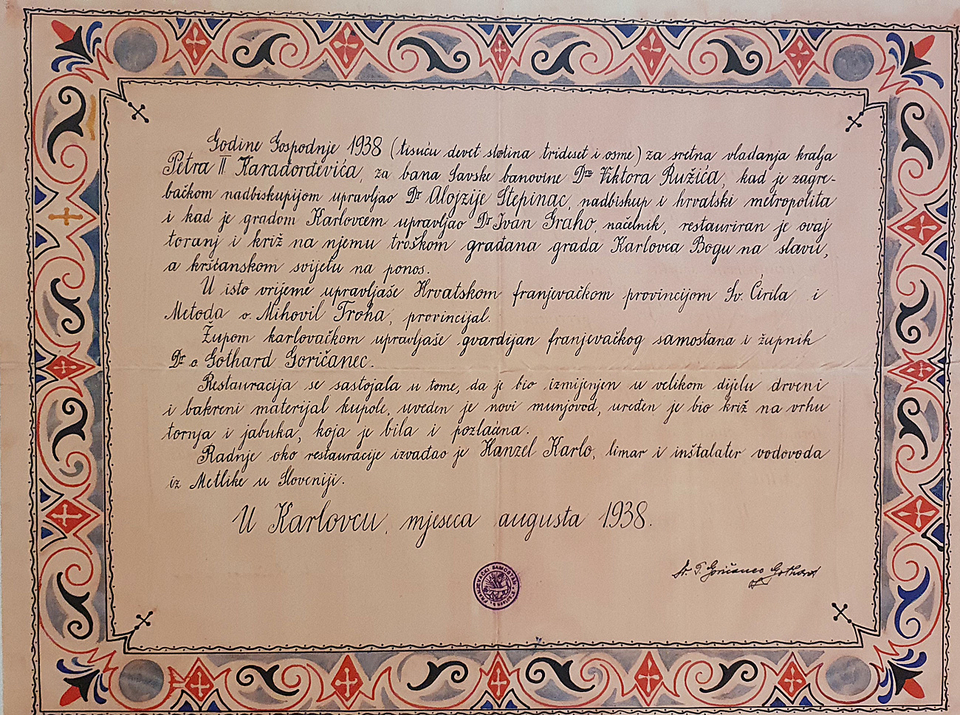 Godine Gospodnje 1938 (tisuću devet stotina trideset i osme) za sretna vladanja kralja
Petra II Karađorđevića, za bana Savske banovine Dra Viktora Ružića, kad je zagre-
bačkom nadbiskupijom upravljao Dr Alojzije Stepinac, nadbiskup i hrvatski metropolita
i kad je gradom Karlovcem upravljao Dr Ivan Graho, načelnik, restauriran je ovaj
toranj i križ na njemu troškom građana grada Karlovca Bogu na slavu,
a kršćanskom svijetu na ponos.
U isto vrijeme upravljaše Hrvatskom franjevačkom provincijom Sv. Ćirila i
Metoda o. Mihovil Troha, provincijal.
Župom karlovačkom upravljaše gvardijan franjevačkog samostana i župnik
Dr o Gothard Goričanec.
Restauracija se sastojala u tome, da je bio izmijenjen u velikom dijelu drveni
i bakreni materijal kupole, uveden je novi munjovod, uređen je bio križ na vrhu
tornja i jabuka, koja je bila i pozlaćna.
Radnje oko restauracije izvađao je Hanzel Karlo, limar i inštalater vodovoda
iz Metlike u Sloveniji.
U Karlovcu, mjeseca augusta 1938.
Goričanec Gothard
SAMOSTAN